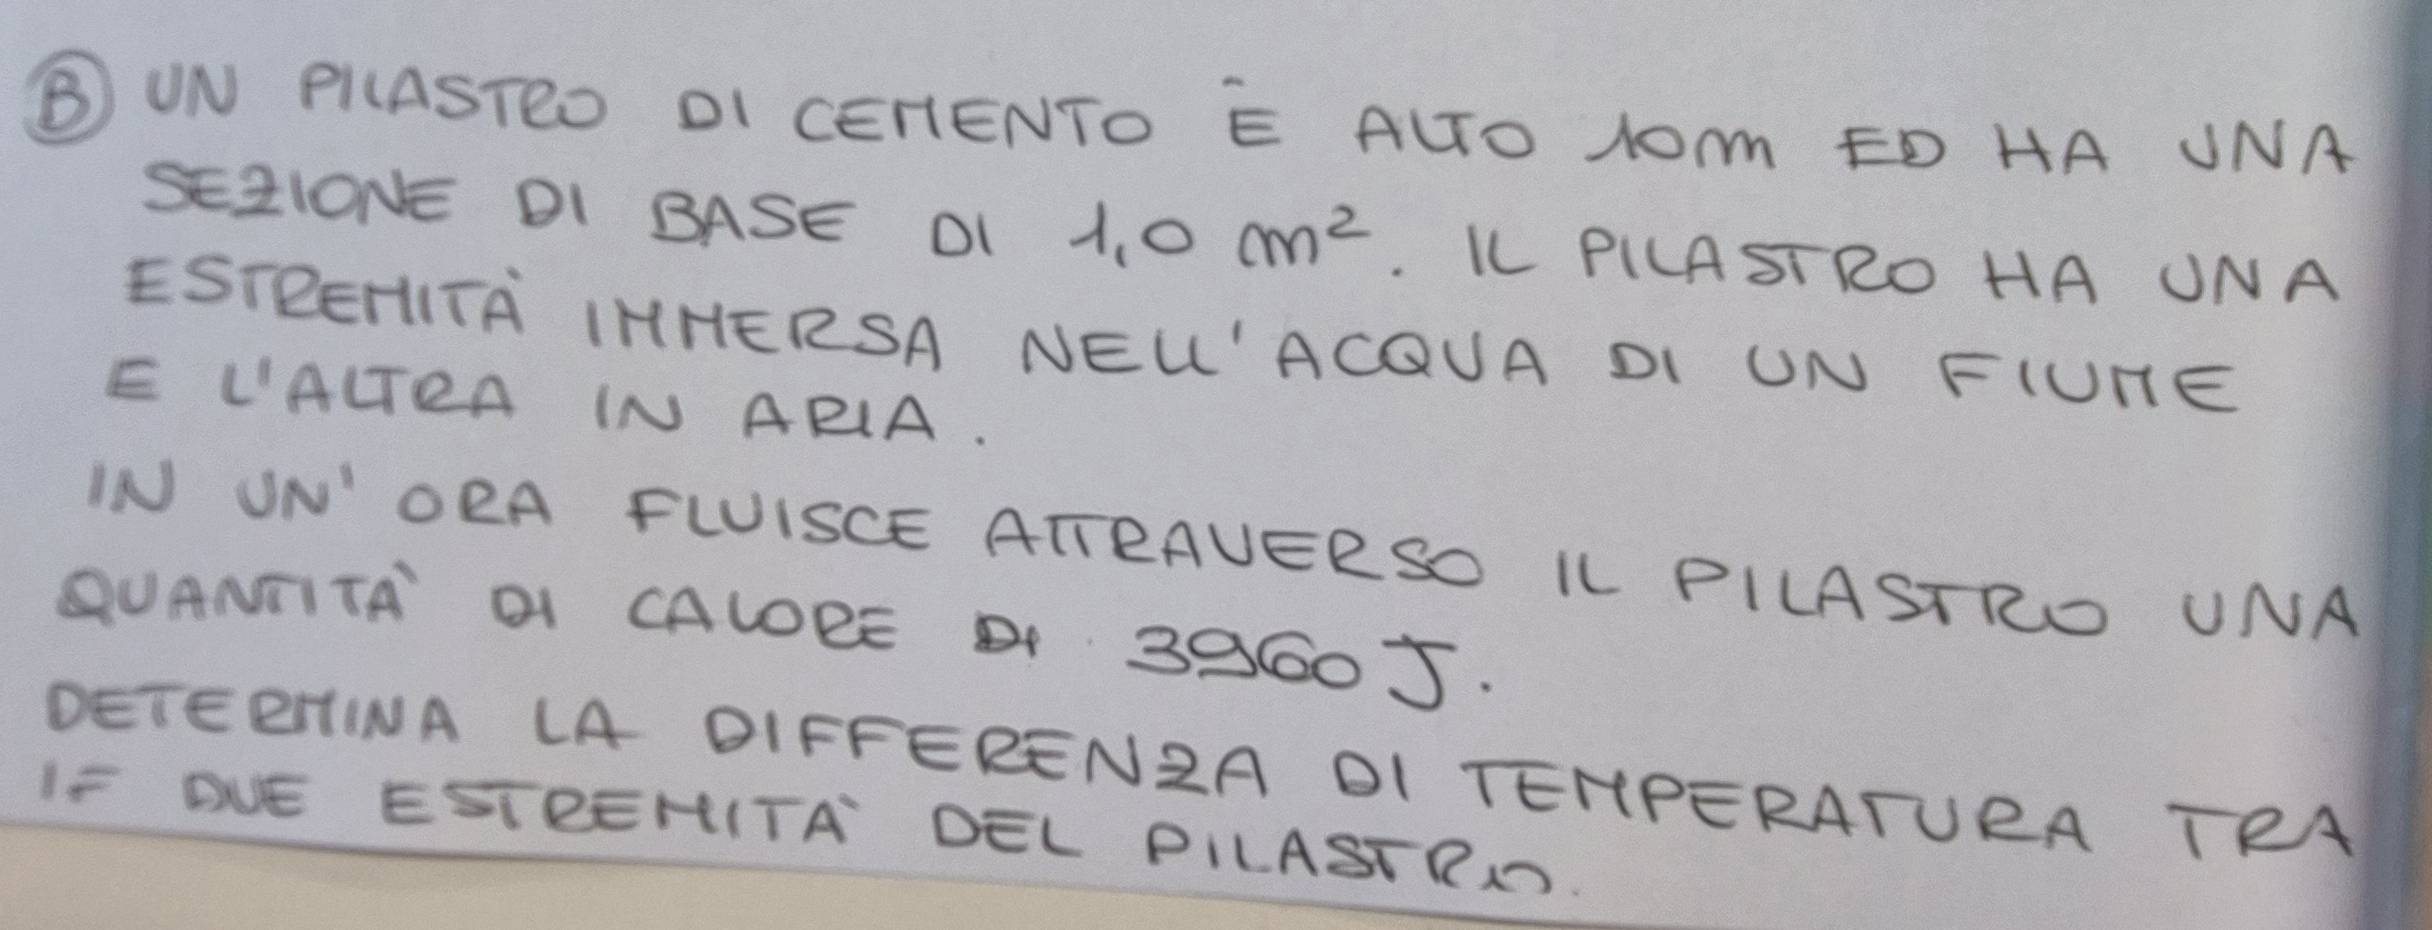 B UN PILASTRO DI CEMENTO È ALTO 10m ED HA UNA
SEZIONE DI BASE DI 1,0 m². IL PILASTRO HA UNA
ESTREMITÀ IMMERSA NELL'ACQUA DI UN FIUME
E L'ALTRA IN ARIA.
IN UN'ORA FLUISCE ATTRAVERSO IL PILASTRO UNA
QUANTITÀ DI CALORE DI 3960 J.
DETERMINA LA DIFFERENZA DI TEMPERATURA TRA
LE DUE ESTREMITÀ DEL PILASTRO.